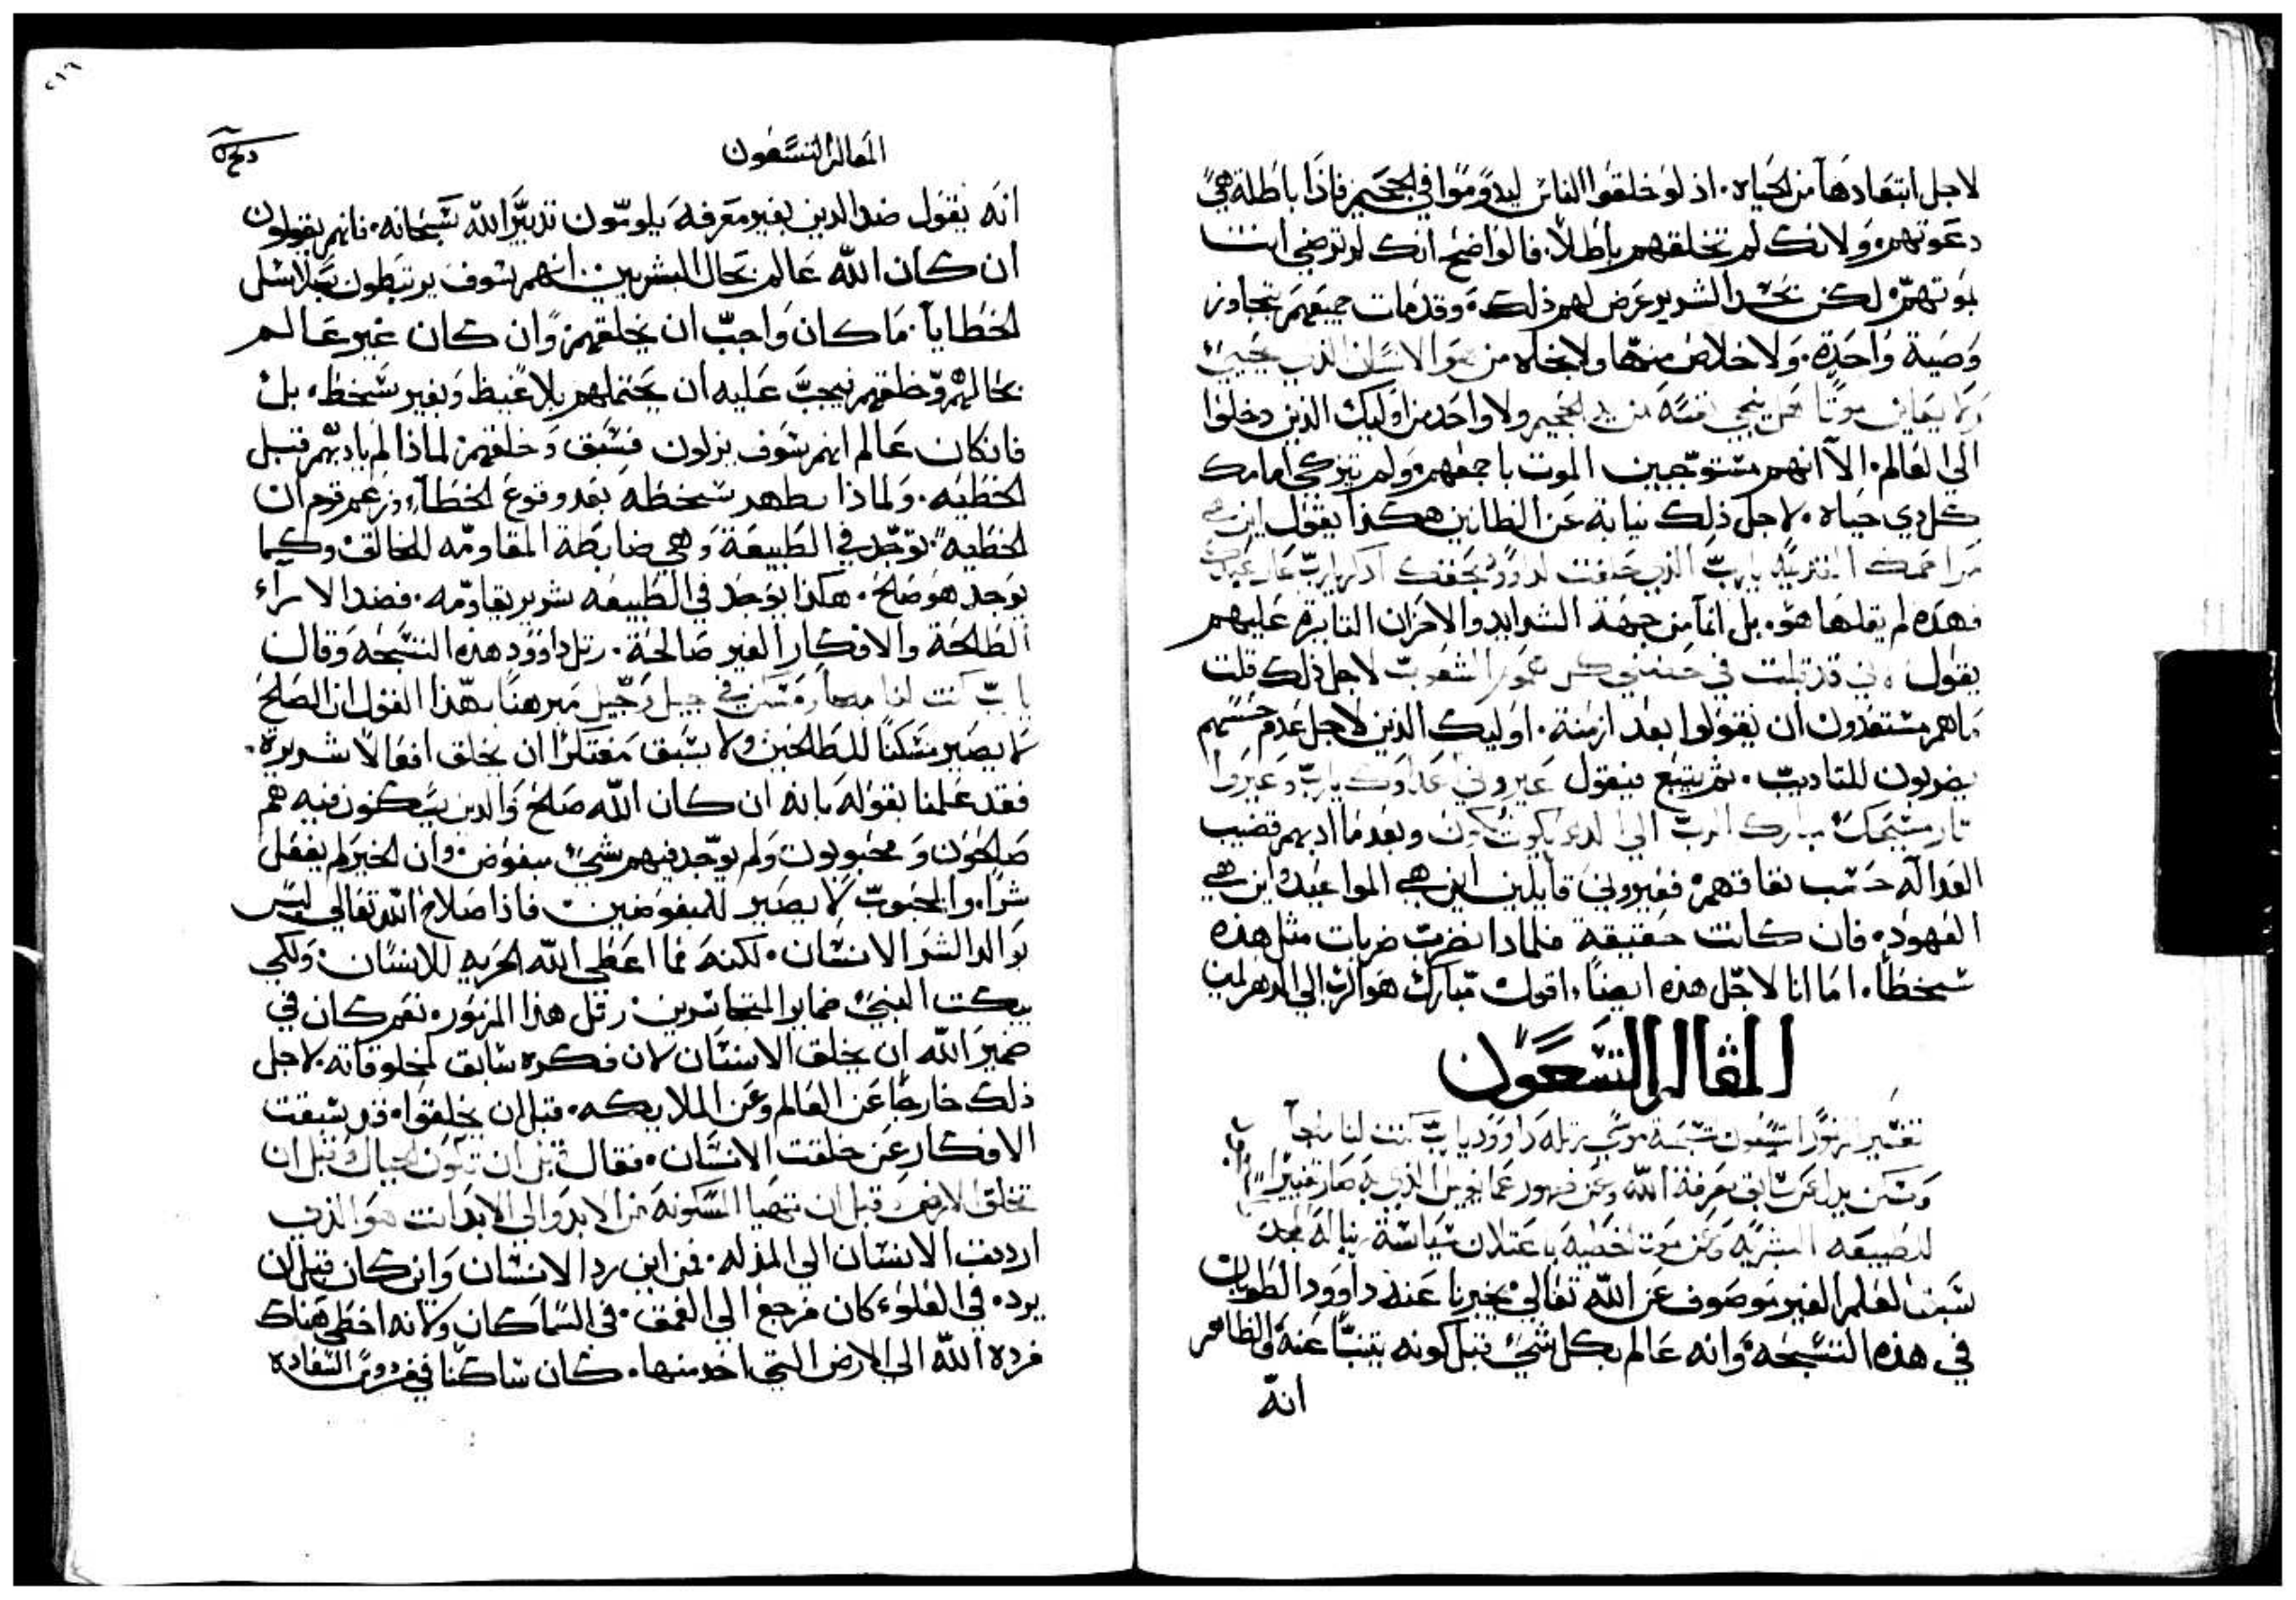 لاجل ابتعادها من الحياه. اذ لو خلقوا الناس ليدوموا في الجحيم فاذا باطلة هي
دعوتهم. ولانك لم تخلقهم باطلاً. فالواضح انك لم ترضى انت
بموتهم. لكن بحسد الشرير عرض لهم ذلك. وقد مات جميعهم بتجاوز
وصية واحدة. ولا خلاص منها ولا نجاه من هو الانسان الذي يحيى
ولا يعاين موتًا من ينجي نفسه من يد الجحيم ولا واحد من اوليك الذين دخلوا
الى العالم. الا انهم مستوجبين الموت باجمعهم ولم يتزكى امامك
كل ذي حياه. لاجل ذلك نيابة عن الظانين هكذا يقول اين هي
مراحمك القديمة يارب الذي حلفت لداوود بحقك اذكر يارب عار عبيدك
فهذه لم يقلها هو. بل انما من جهة الشدايد والاحزان الثايرة عليهم
يقول اني قد قبلت في حضني كل الشعوب لاجل ذلك قلت
ما هم مستعدون ان يقولوا بعد ازمنة. اوليك الذين لاجل عدم حسهم
يضربون للتاديب. ثم يتبع فيقول عيروني اعداوك يارب وعيروا
اثار مسيحك مبارك الرب الى الدهر يكون يكون وبعد ما ادبهم قضيب
العداله حسب نفاقهم. فعيروني قايلين اين هي المواعيد واين هي
العهود. فان كانت حقيقية فلماذا نضرب ضربات مثل هذه
سخطًا. اما انا لاجل هذه ايضًا. اقول مبارك هو الرب الى الدهر امين
المقاله التسعون
تفسير المزمور التسعون تسبحة موسى رتله داوود يارب كنت لنا ملجأ
لطبيعه البشريه وعن موت الخطيه باعتلان سياسة ربنا له المجد
سبق العلم الغير موصوف عن الله تعالى يخبرنا عنه داوود الطوبان
في هذه التسبحه. وانه عالم بكل شيء قبل كونه يتنبا عنه والظاهر
انه
٢١٦
المقاله التسعون
انه يقول ضد الذين بغير معرفه يلومون تدبير الله سبحانه. فانهم يقولون
ان كان الله عالم بحال البشريين انهم سوف يرتبطون بسلاسل
الخطايا. ما كان واجب ان يخلقهم. وان كان غير عالم
بحالهم وخلقهم فيجب عليه ان يحتملهم بلا غيظ وبغير سخط. بل
فان كان عالم انهم سوف يزلون فسبق وخلقهم. لماذا لم يادبهم قبل
الخطيه. ولماذا يظهر سخطه بعد وقوع الخطا. وزعم قوم ان
الخطيه توجد في الطبيعة وهي ضابطة المقاومه للخالق. وكما
يوجد هو صالح. هكذا يوجد في الطبيعه شرير يقاومه. فضد الاراء
الطالحة والافكار الغير صالحة. رتل داوود هذه التسبحه وقال
يارب كنت لنا ملجأ ومسكن في جيل وجيل مبرهنًا بهذا القول ان الصالح
لا يصير مسكنًا للطالحين ولا يسبق مفتكرًا ان يخلق افعالاً شريرة.
فقد علمنا بقوله بانه ان كان الله صالح والذين يسكنون فيه هم
صالحون ومحبوبون ولم يوجد فيهم شيء مبغوض. وان الخير لم يفعل
شرًا. والمحبوب لا يصير للمبغوضين فاذا صلاح الله تعالى ليس
يوالد الشر الانسان. لكنه مما اعطى الله الحريه للانسان. ولكي
يبكت النبي ضماير المتجاسرين. رتل هذا المزمور. نعم كان في
ضمير الله ان يخلق الانسان لان فكره سابق لمخلوقاته. لاجل
ذلك خارجًا عن العالم وعن الملايكه. قبل ان يخلقوا. قد سبقت
الافكار عن خلقت الانسان. فقال قبل ان تكون الجبال وقبل ان
تخلق الارض وقبل ان تتهيا المسكونة من الابد والى الابد انت هو الذي
ارديت الانسان الى المذله. فمن اين رد الانسان واين كان قبل ان
يرد. في العلو كان فرجع الى العمق. في السما كان ولانه اخطى هناك
فرده الله الى الارض التي اخد منها. كان ساكنًا في فردوس السعاده